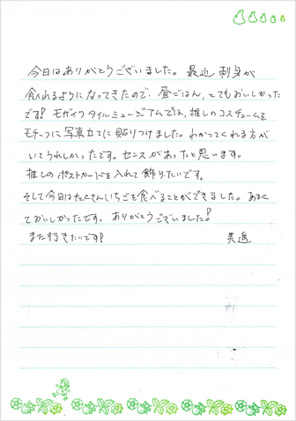 今日はありがとうございました。最近 刺身が
食べれるようになってきたので、昼ごはん、とてもおいしかった
です! モザイクタイルミュージアムでは、推しのコスチュームを
モチーフに写真立てに貼りつけました。わかってくれる方が
いてうれしかったです。センスがあったと思います。
推しのポストカードを入れて飾りたいです。
そして今日はたくさんいちごを食べることができました。あまく
ておいしかったです。ありがとうございました!
また行きたいです!